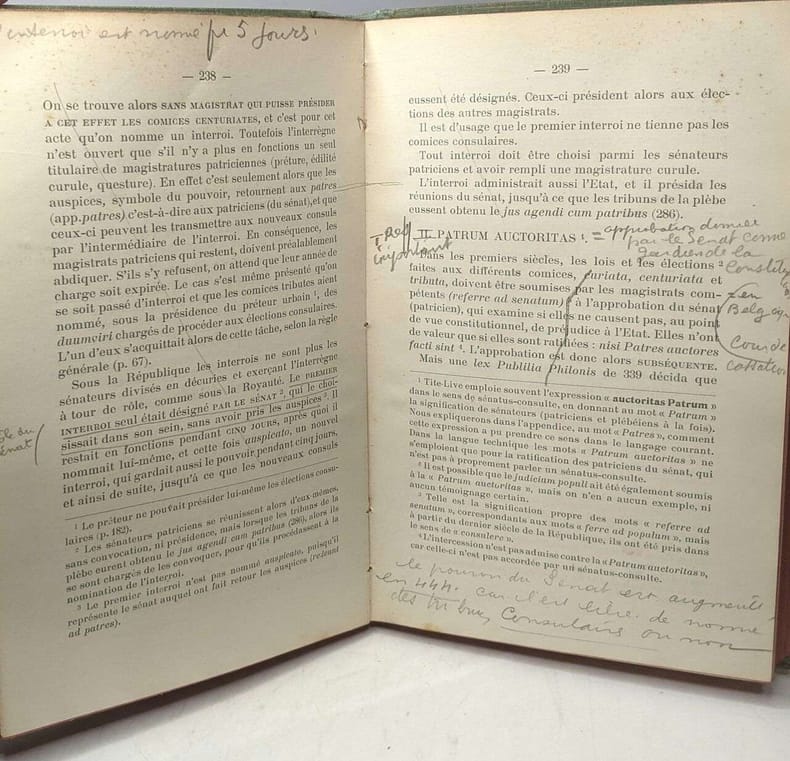 est nomé pr 5 jours.
— 238 —
On se trouve alors SANS MAGISTRAT QUI PUISSE PRÉSIDER
A CET EFFET LES COMICES CENTURIATES, et c'est pour cet
acte qu'on nomme un interroi. Toutefois l'interrègne
n'est ouvert que s'il n'y a plus en fonctions un seul
titulaire de magistratures patriciennes (préture, édilité
curule, questure). En effet c'est seulement alors que les
auspices, symbole du pouvoir, retournent aux patres
(app. patres) c'est-à-dire aux patriciens (du sénat), et que
ceux-ci peuvent les transmettre aux nouveaux consuls
par l'intermédiaire de l'interroi. En conséquence, les
magistrats patriciens qui restent, doivent préalablement
abdiquer. S'ils s'y refusent, on attend que leur année de
charge soit expirée. Le cas s'est même présenté qu'on
se soit passé d'interroi et que les comices tributes aient
nommé, sous la présidence du préteur urbain ¹, des
duumviri chargés de procéder aux élections consulaires.
L'un d'eux s'acquittait alors de cette tâche, selon la règle
générale (p. 67).
Sous la République les interrois ne sont plus les
sénateurs divisés en décuries et exerçant l'interrègne
à tour de rôle, comme sous la Royauté. LE PREMIER
INTERROI seul était désigné PAR LE SÉNAT ², qui le choi-
sissait dans son sein, sans avoir pris les auspices ³. Il
restait en fonctions pendant CINQ JOURS, après quoi il
nommait lui-même, et cette fois auspicato, un nouvel
interroi, qui gardait aussi le pouvoir pendant cinq jours,
et ainsi de suite, jusqu'à ce que les nouveaux consuls
du
sénat
¹ Le préteur ne pouvait présider lui-même les élections consu-
laires (p. 182).
² Les sénateurs patriciens se réunissent alors d'eux-mêmes,
sans convocation, ni présidence, mais lorsque les tribuns de la
plèbe eurent obtenu le jus agendi cum patribus (286), alors ils
se sont chargés de les convoquer, pour qu'ils procédassent à la
nomination de l'interroi.
³ Le premier interroi n'est pas nommé auspicato, puisqu'il
représente le sénat auquel ont fait retour les auspices (redeunt
ad patres).
— 239 —
eussent été désignés. Ceux-ci président alors aux élec-
tions des autres magistrats.
Il est d'usage que le premier interroi ne tienne pas les
comices consulaires.
Tout interroi doit être choisi parmi les sénateurs
patriciens et avoir rempli une magistrature curule.
L'interroi administrait aussi l'Etat, et il présida les
réunions du sénat, jusqu'à ce que les tribuns de la plèbe
eussent obtenu le jus agendi cum patribus (286).
important
II. PATRUM AUCTORITAS ¹.
= approbation donnée
par le Sénat come
gardien de la
Constit
Dans les premiers siècles, les lois et les élections ²
faites aux différents comices, curiata, centuriata et
tributa, doivent être soumises par les magistrats com-
pétents (referre ad senatum) ³ à l'approbation du sénat
(patricien), qui examine si elles ne causent pas, au point
de vue constitutionnel, de préjudice à l'Etat. Elles n'ont
de valeur que si elles sont ratifiées : nisi Patres auctores
facti sint ⁴. L'approbation est donc alors SUBSÉQUENTE.
Mais une lex Publilia Philonis de 339 décida que
en
Belgique
Cour de
cassation
¹ Tite-Live emploie souvent l'expression « auctoritas Patrum »
dans le sens de sénatus-consulte, en donnant au mot « Patrum »
la signification de sénateurs (patriciens et plébéiens à la fois).
Nous expliquerons dans l'appendice, au mot « Patres », comment
cette expression a pu prendre ce sens dans le langage courant.
Dans la langue technique les mots « Patrum auctoritas » ne
s'emploient que pour la ratification des patriciens du sénat, qui
n'est pas à proprement parler un sénatus-consulte.
² Il est possible que le judicium populi ait été également soumis
à la « Patrum auctoritas », mais on n'en a aucun exemple, ni
aucun témoignage certain.
³ Telle est la signification propre des mots « referre ad
senatum », correspondants aux mots « ferre ad populum », mais
à partir du dernier siècle de la République, ils ont été pris dans
le sens de « consulere ».
⁴ L'intercession n'est pas admise contre la « Patrum auctoritas »,
car celle-ci n'est pas accordée par un sénatus-consulte.
le pouvoir du Sénat est augmenté
en 444. car il est libre de nommer
des tribuns Consulaires ou non